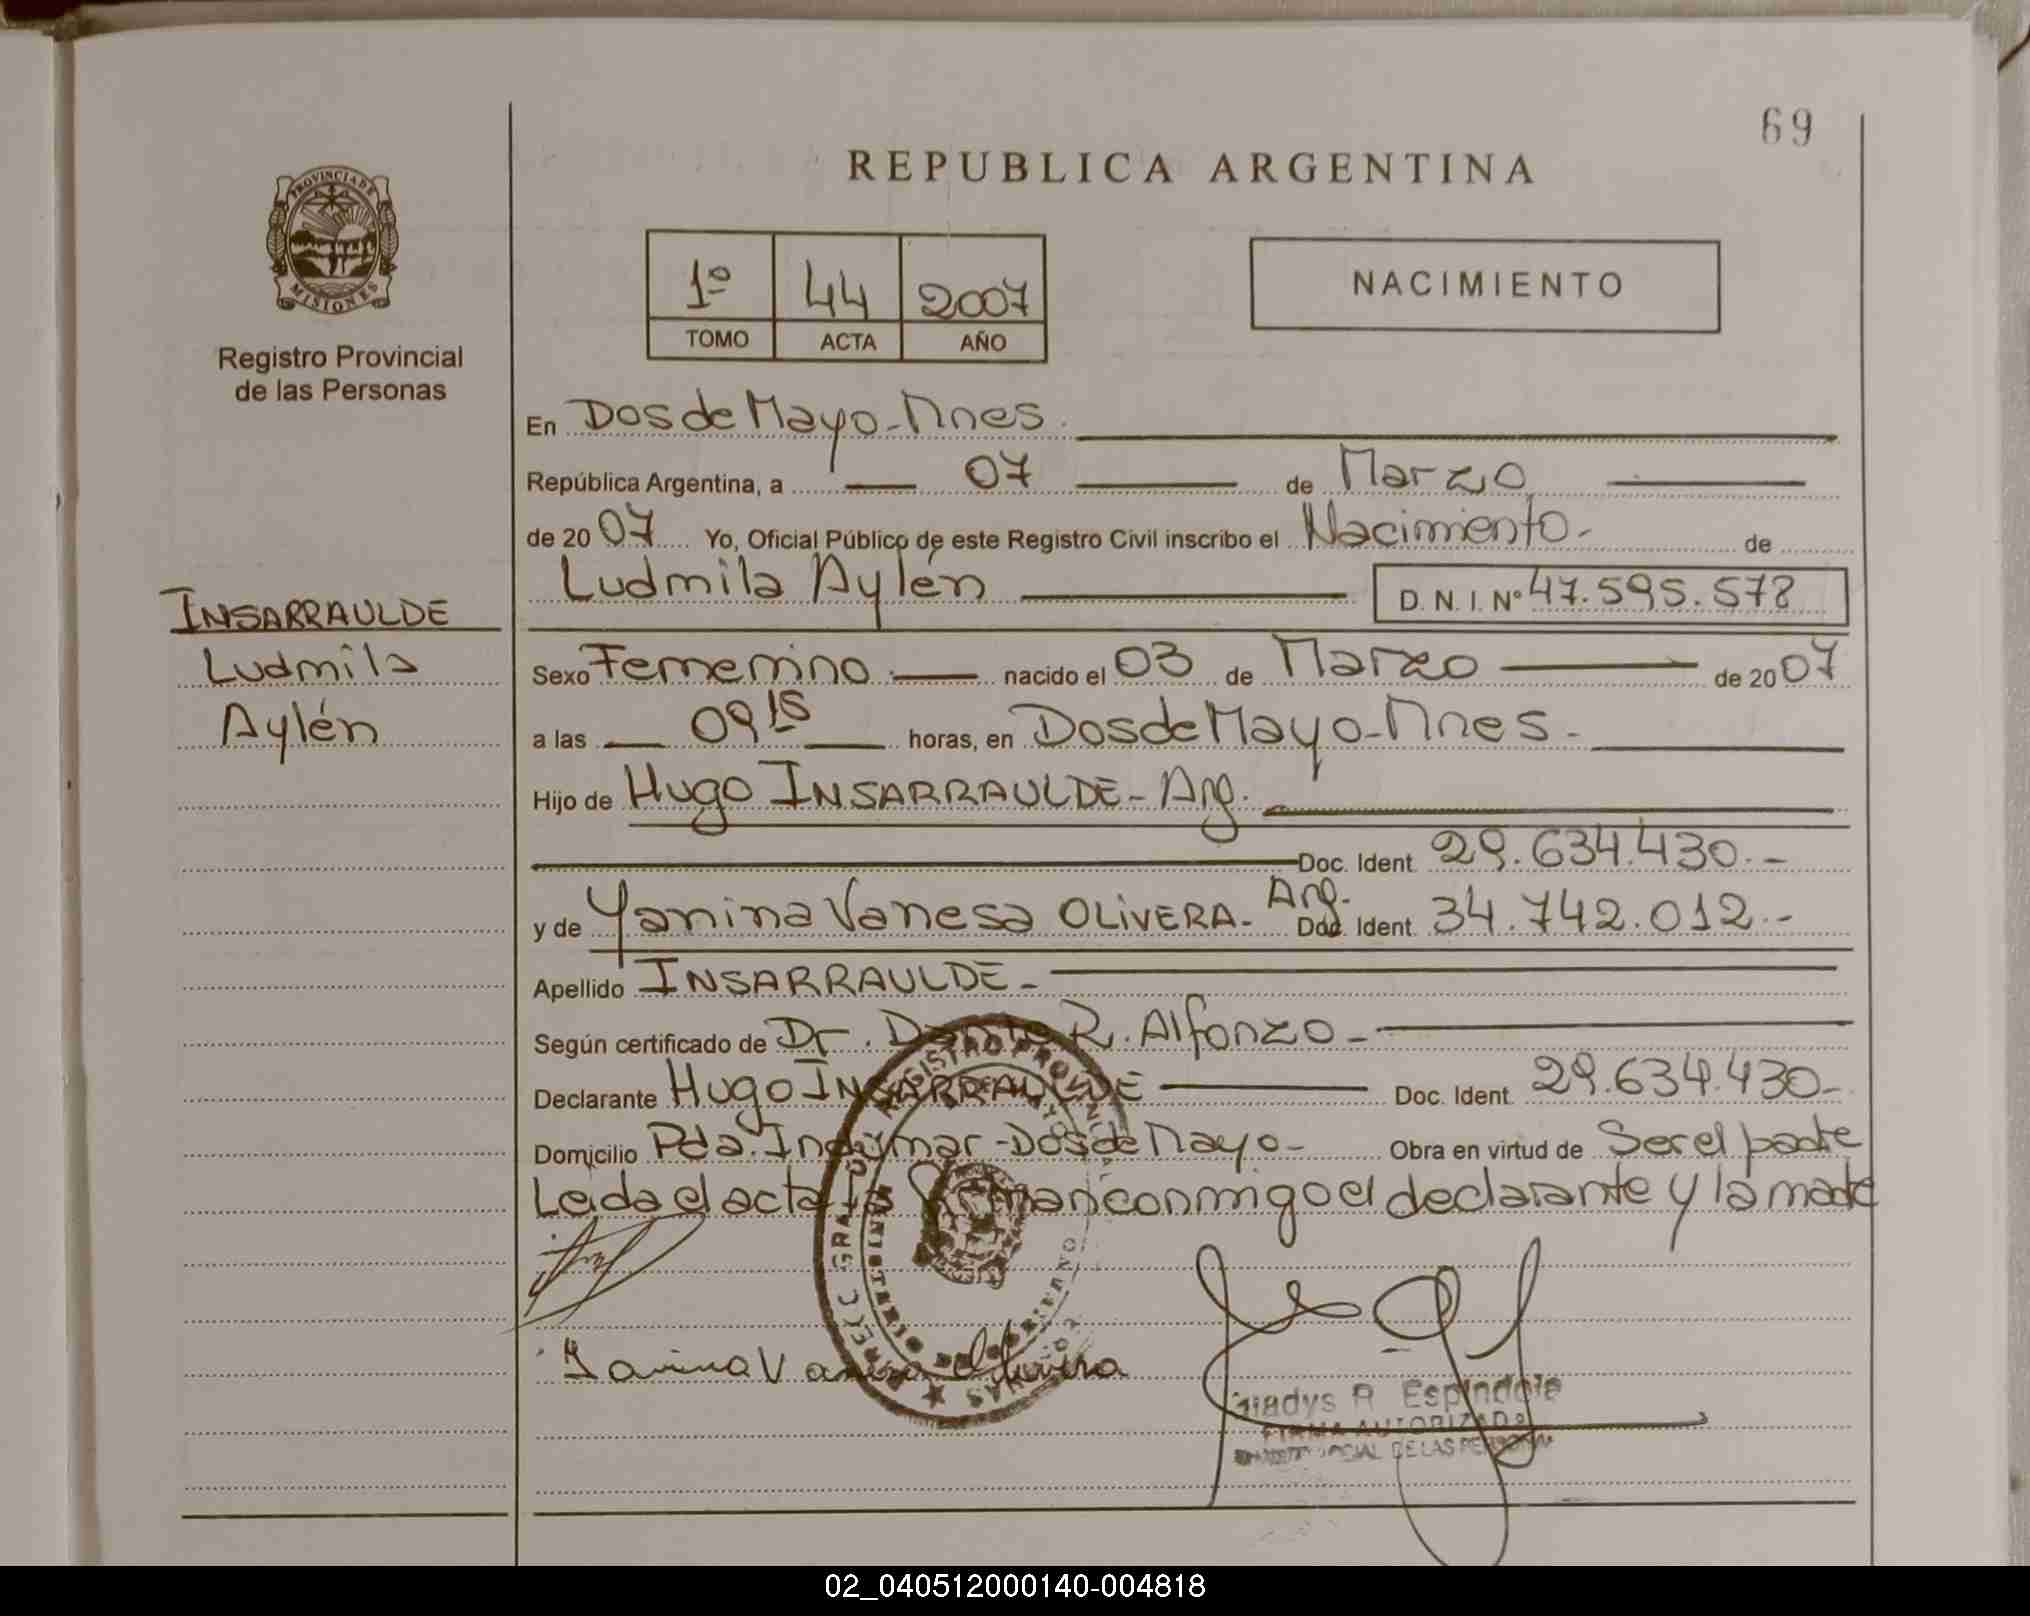 69
REPUBLICA ARGENTINA
PROVINCIA DE
MISIONES
Registro Provincial
de las Personas
1º 44 2007
TOMO ACTA AÑO
NACIMIENTO
En Dos de Mayo-Mnes.
República Argentina, a 07 de Marzo
de 2007 Yo, Oficial Público de este Registro Civil inscribo el Nacimiento- de
Ludmila Aylén D. N. I. Nº 47.595.578
INSARRAULDE
Ludmila
Aylén
Sexo Femenino nacido el 03 de Marzo de 2007
a las 09 15 horas, en Dos de Mayo-Mnes.-
Hijo de Hugo INSARRAULDE- Arg.
Doc. Ident. 29.634.430.-
y de Yanina Vanesa OLIVERA- Arg. Doc. Ident. 34.742.012.-
Apellido INSARRAULDE-
Según certificado de Dr. Dante R. Alfonzo-
Declarante Hugo INSARRAULDE Doc. Ident. 29.634.430-
Domicilio Pda. Indumar-Dos de Mayo- Obra en virtud de Ser el padre
Leida el acta la firman conmigo el declarante y la madre
Yanina Vanesa Olivera
Gladys R Espindola
FIRMA AUTORIZADA
02_040512000140-004818